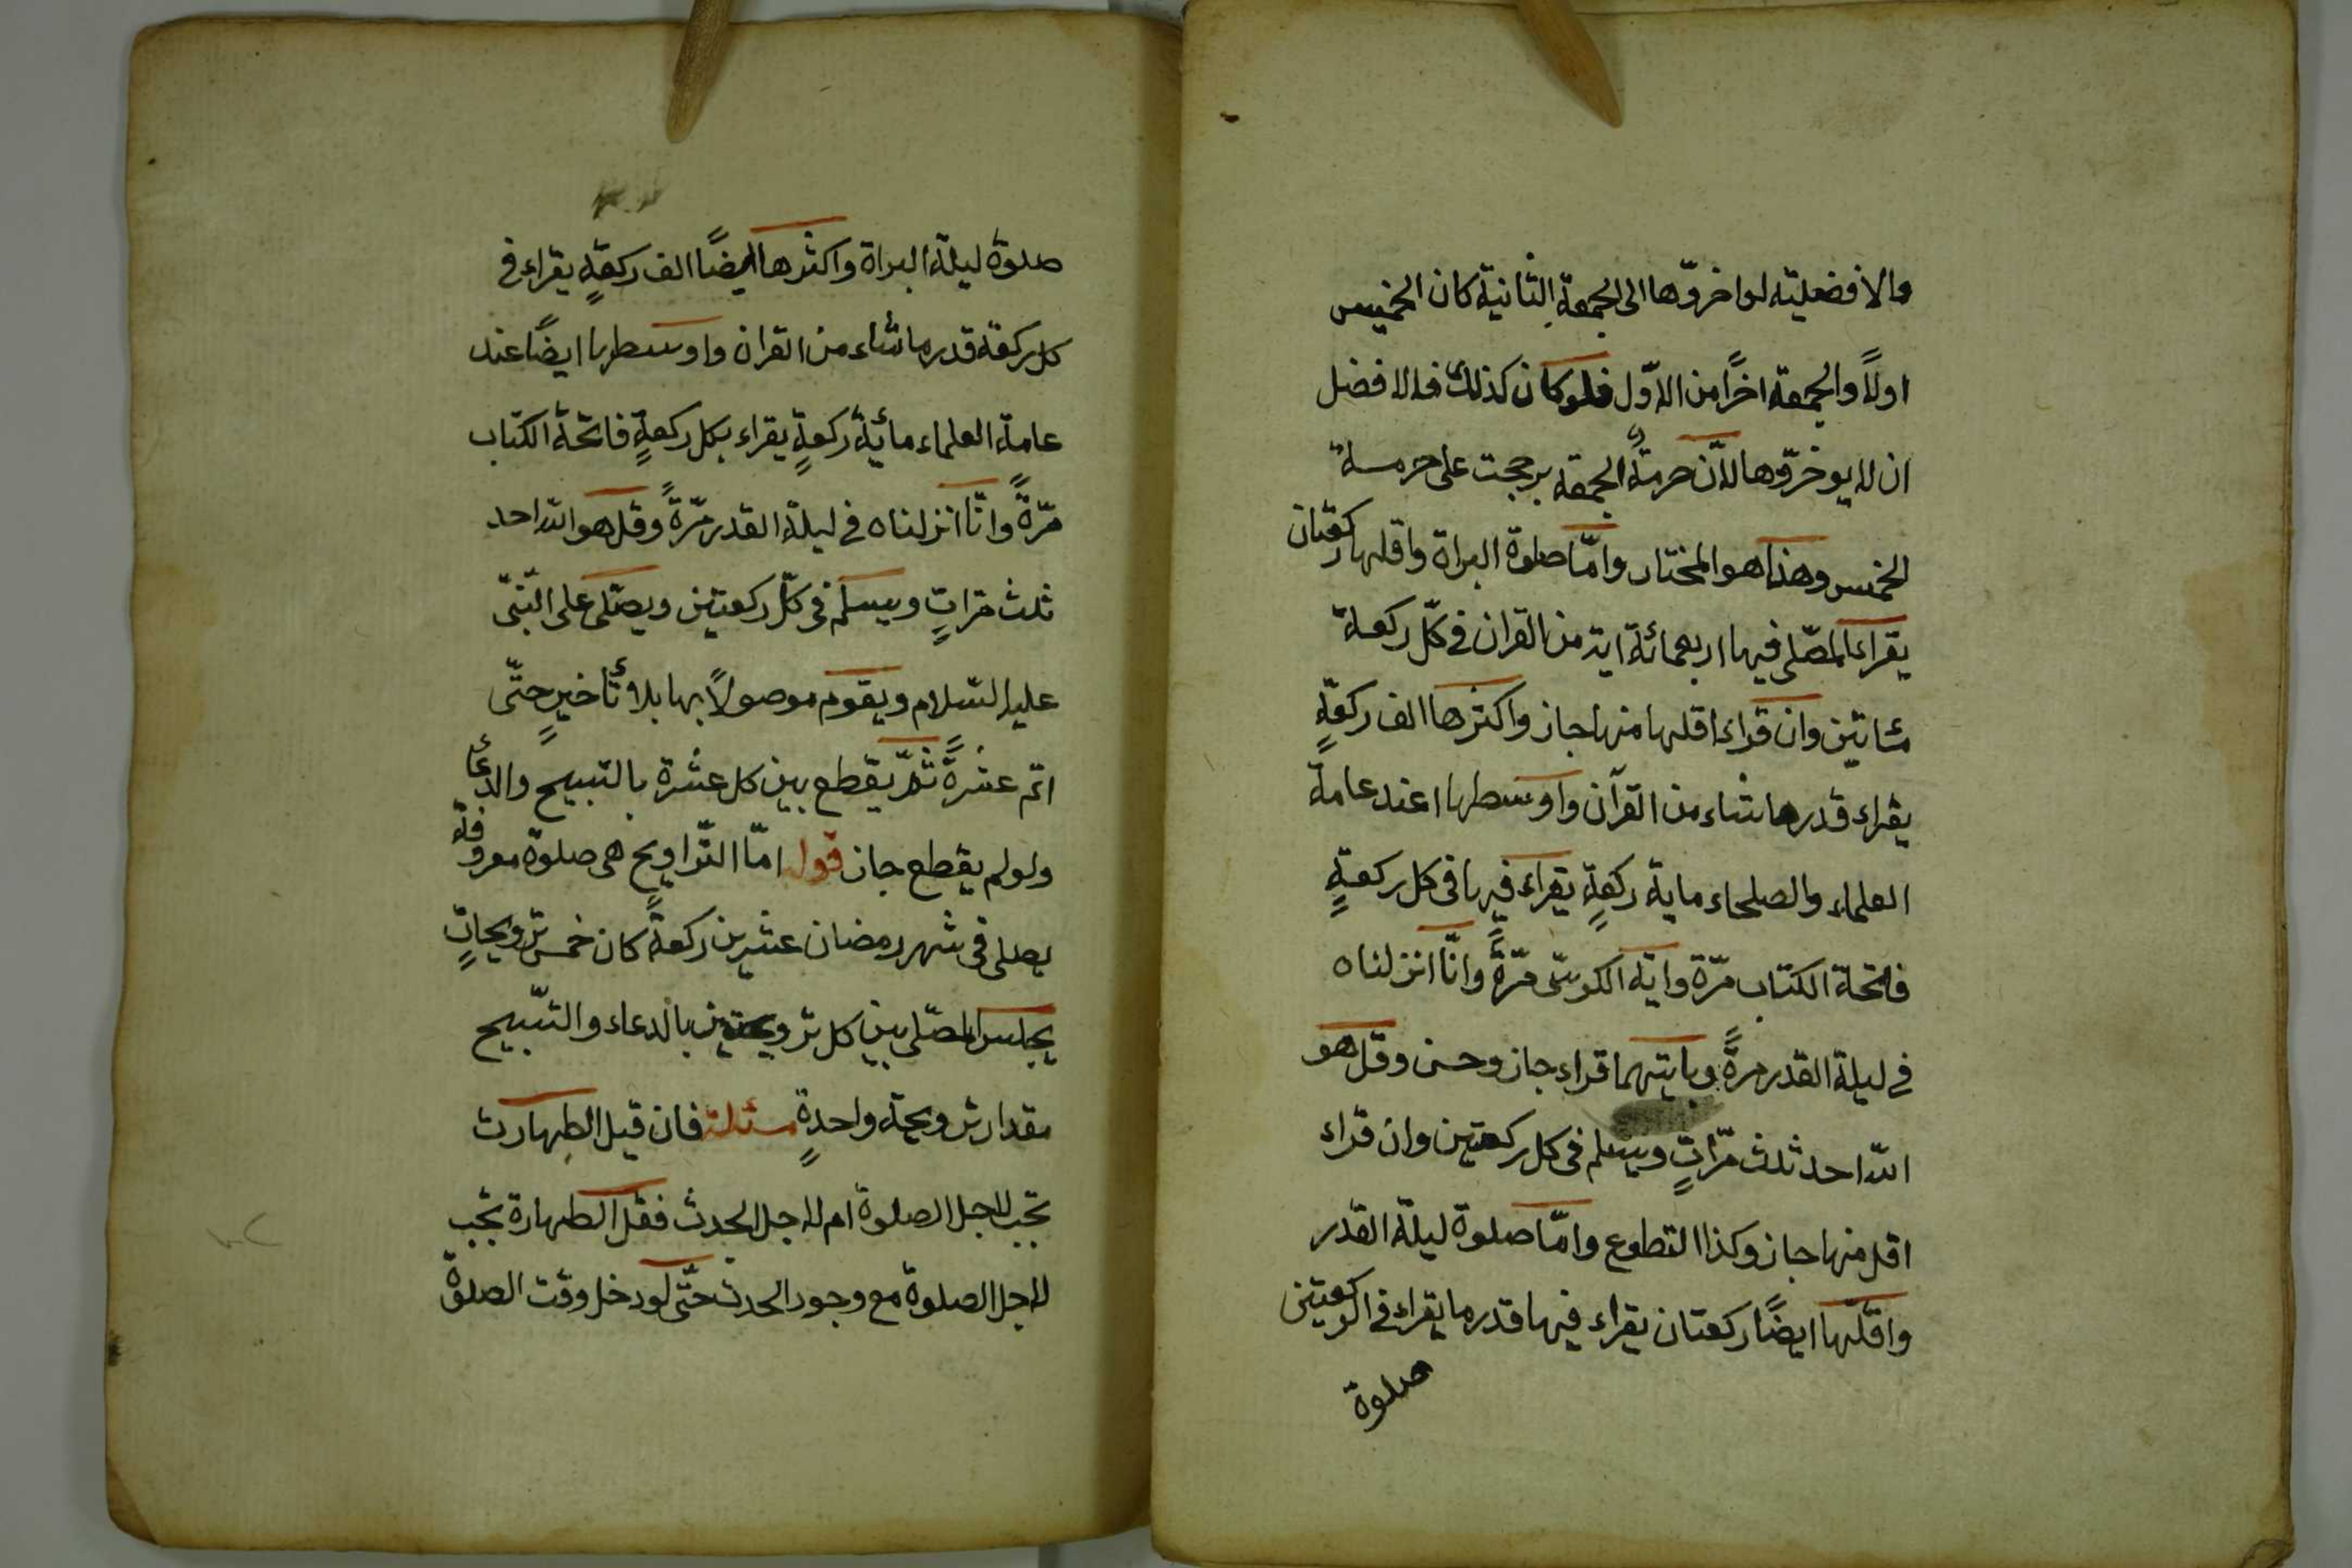 والافضلية لو اخروّها الى الجمعة الثانية كان الخميس
اولاً والجمعة اخرًا من الاوّل فلو كان كذلك فالافضل
ان لا يوخروّها لانّ حرمةً الجمعة برججت على حرمسة
الخمس وهذا هو المختار وامّا صلوة البراة واقلها ركعتان
يقراء المصلّى فيها اربعمائة اية من القران فى كلّ ركعة
مئاتين وان قراء اقلها منها جاز واكثرها الف ركعةٍ
يقراء قدر ما شاء من القرآن واوسطها عند عامة
العلماء والصلحاء ماية ركعةٍ يقراء فيها فى كل ركعةٍ
فاتحة الكتاب مرّة واية الكرسّى مرّةً وانّا انزلناه
فى ليلة القدر مرةً وبايتهما قراء جاز وحسن وقل هو
الله احد ثلث مرّاتٍ ويسلم فى كل ركعتين وان قراء
اقل منها جاز وكذا التطوع وامّا صلوة ليلة القدر
واقلّها ايضًا ركعتان يقراء فيها قدر ما يقراء فى الركعتين
صلوة
صلوة ليلة البراة واكثرها ايضًا الف ركعةٍ يقراء فى
كل ركعة قدر ما شاء من القران واوسطها ايضًا عند
عامة العلماء مائية ركعةٍ يقراء بكل ركعةٍ فاتحة الكتاب
مرّةً وانّا انزلناه فى ليلة القدر مرّةً وقل هو الله احد
ثلث مراتٍ ويسلم فى كلّ ركعتين ويصلّى على النّبىّ
عليه السّلام ويقوم موصولاً بها بلا تأخيرٍ حتّى
اتم عشرةً ثمّ يقطع بين كل عشرة بالتسبيح والدعاء
ولو لم يقطع جاز قوله امّا التّراويح هى صلوة معروفة
يصلى فى شهر رمضان عشرين ركعةً كان خمس ترويحاتٍ
يجلس المصّلى بين كل ترويحتين بالدعاء والتسّبيح
مقدار ترويحة واحدةٍ مسئلة فان قيل الطهارت
تجب لاجل الصلوة ام لاجل الحدث فقل الطهارة تجب
لاجل الصلوة مع وجود الحدث حتّى لو دخل وقت الصلوة